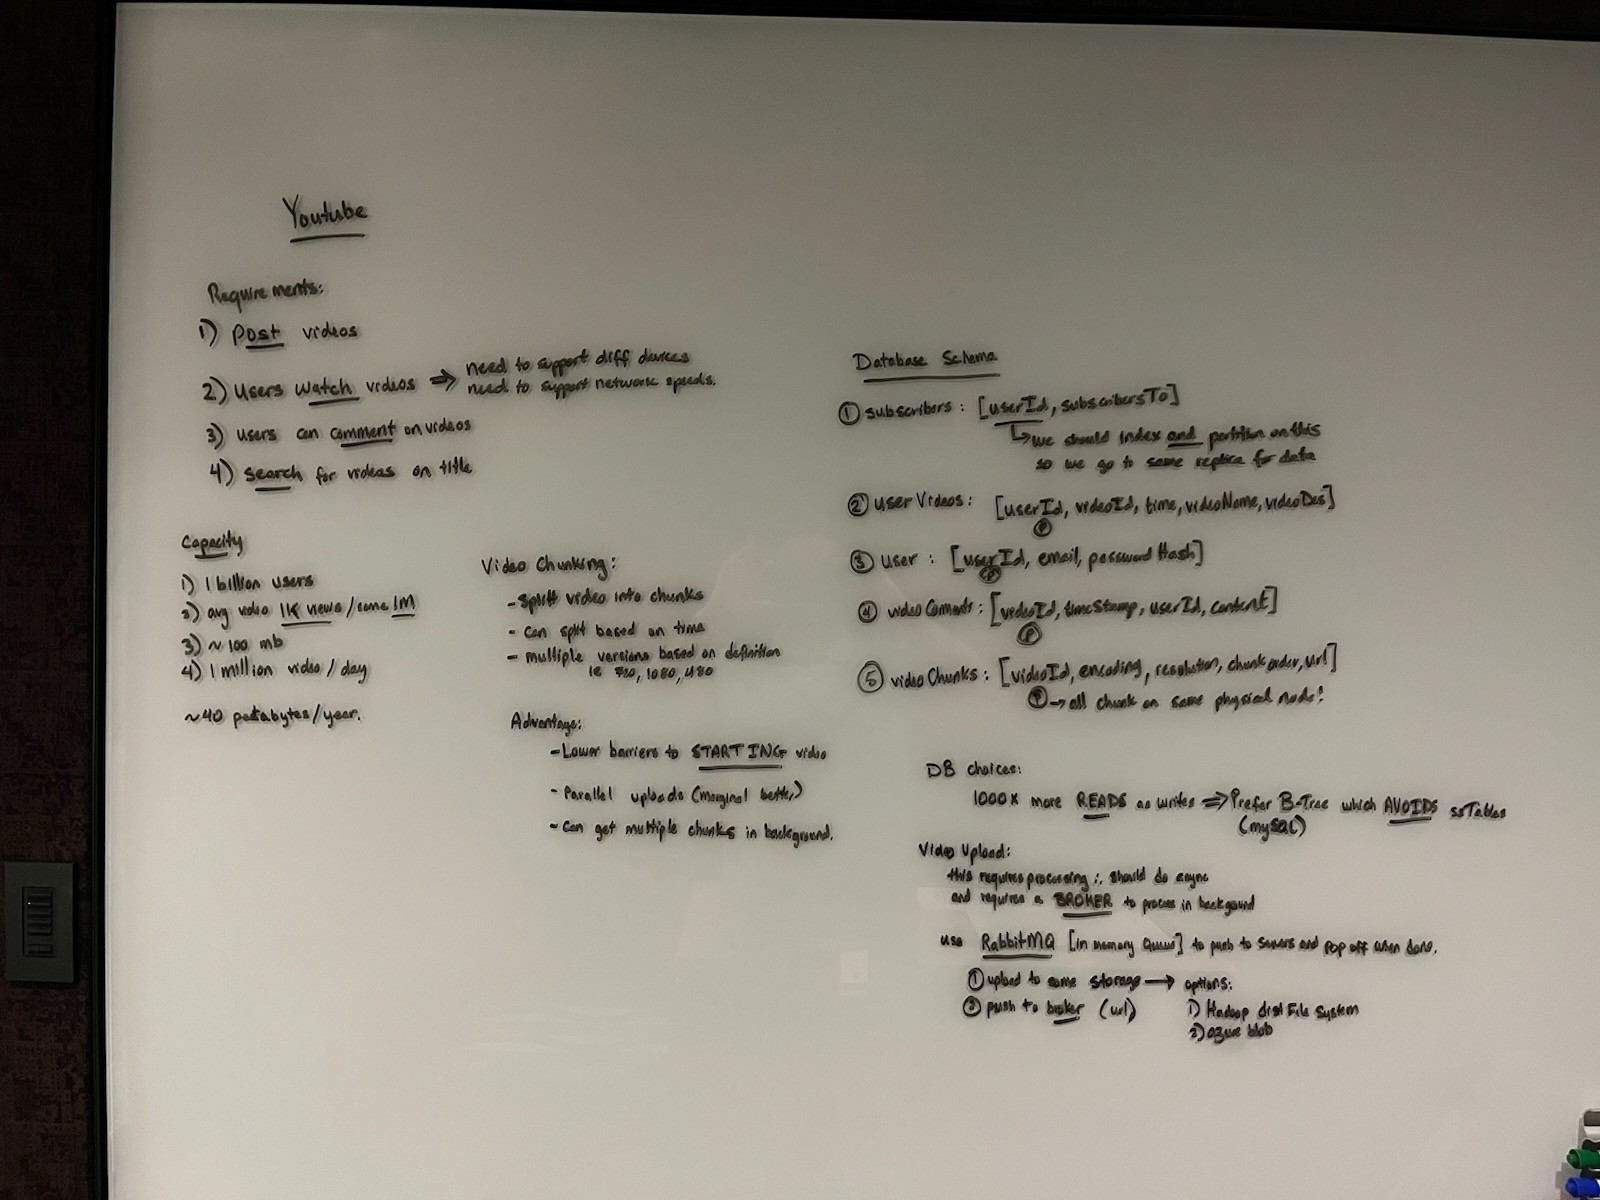 Youtube
Requirements:
1) Post videos
2) Users watch videos ⇒ need to support diff devices
need to support network speeds.
3) users can comment on videos
4) Search for videos on title
Capacity
1) 1 billion users
2) avg video 1K views / some 1M
3) ~ 100 mb
4) 1 million video / day
~40 petabytes/year.
Video Chunking:
- Split video into chunks
- Can split based on time
- multiple versions based on definition
ie 720, 1080, 480
Advantage:
- Lower barriers to STARTING video
- Parallel uploads (marginal better)
- Can get multiple chunks in background.
Database Schema
① subscribers: [userId, subscribersTo]
↳ we should index and partition on this
so we go to same replica for data
② user Videos: [userId, videoId, time, videoName, videoDes]
Ⓟ
③ user: [userId, email, password Hash]
Ⓟ
④ video Coments: [videoId, timeStamp, userId, content]
Ⓟ
⑤ video Chunks: [videoId, encoding, resolution, chunk order, url]
Ⓟ → all chunk on same physical node!
DB choices:
1000x more READS as writes ⇒ Prefer B-Tree which AVOIDS ssTables
(mySQL)
Video Upload:
this requires processing ∴ should do async
and requires a BROKER to process in backgound
use RabbitMQ [in memory Queue] to push to servers and pop off when done.
① upload to some storage → options:
② push to broker (url)
1) Hadoop dist File System
2) azure blob